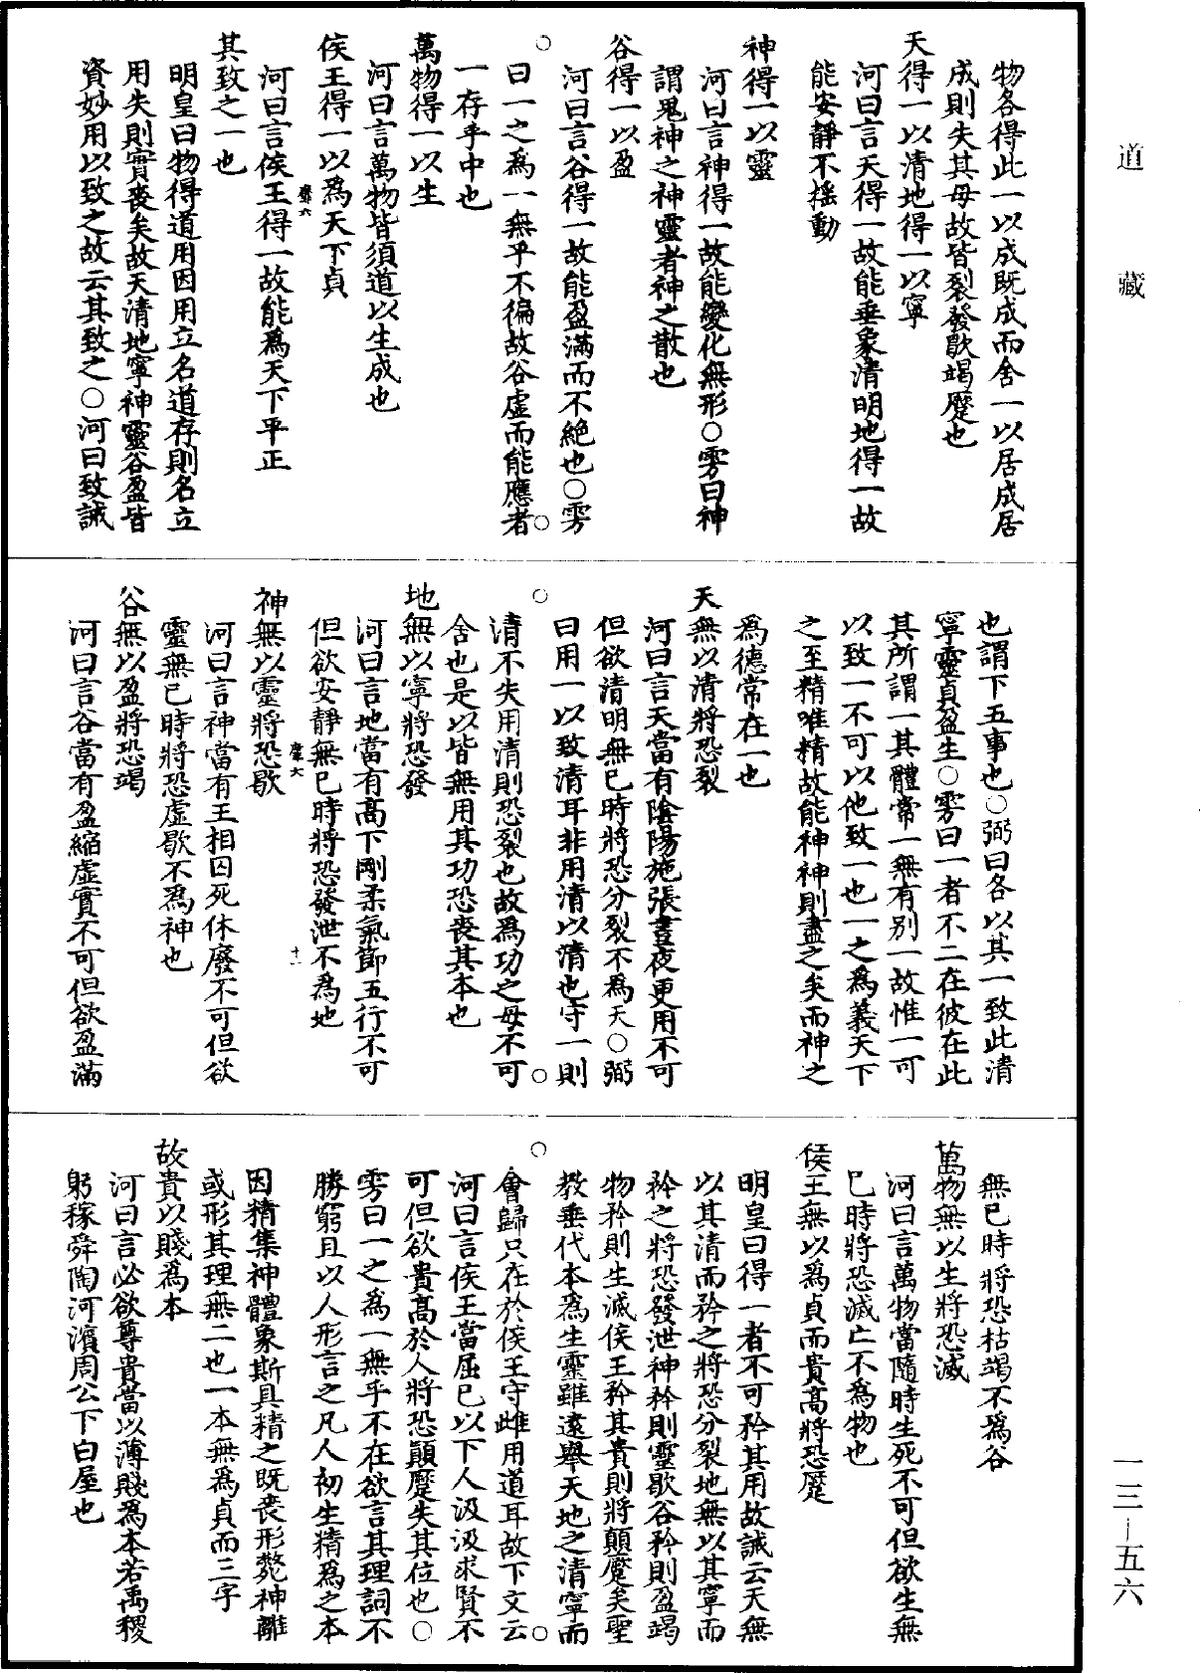 物各得此一以成既成而舍一以居成居
成則失其母故皆裂發歇竭蹷也
天得一以清地得一以寧
河曰言天得一故能垂象清明地得一故
能安靜不揺動
神得一以靈
河曰言神得一故能變化無形○雱曰神
謂鬼神之神靈者神之散也
谷得一以盈
河曰言谷得一故能盈滿而不絶也○雱
曰一之爲一無乎不徧故谷虛而能應者
一存乎中也
萬物得一以生
河曰言萬物皆須道以生成也
侯王得一以爲天下貞
河曰言侯王得一故能爲天下平正
其致之一也
明皇曰物得道用因用立名道存則名立
用失則實喪矣故天清地寧神靈谷盈皆
資妙用以致之故云其致之○河曰致誡
也謂下五事也○弼曰各以其一致此清
寧靈貞盈生○雱曰一者不二在彼在此
其所謂一其體常一無有别一故惟一可
以致一不可以他致一也一之爲義天下
之至精唯精故能神神則盡之矣而神之
爲德常在一也
天無以清將恐裂
河曰言天當有陰陽施張晝夜更用不可
但欲清明無已時將恐分裂不爲天○弼
曰用一以致清耳非用清以清也守一則
清不失用清則恐裂也故爲功之母不可
舍也是以皆無用其功恐喪其本也
地無以寧將恐發
河曰言地當有高下剛柔氣節五行不可
但欲安靜無已時將恐發泄不爲地
十一
神無以靈將恐歇
河曰言神當有王相囚死休廢不可但欲
靈無已時將恐虛歇不爲神也
谷無以盈將恐竭
河曰言谷當有盈縮虛實不可但欲盈滿
無已時將恐枯竭不爲谷
萬物無以生將恐滅
河曰言萬物當隨時生死不可但欲生無
已時將恐滅亡不爲物也
侯王無以爲貞而貴高將恐蹷
明皇曰得一者不可矜其用故誡云天無
以其清而矜之將恐分裂地無以其寧而
矜之將恐發泄神矜則靈歇谷矜則盈竭
物矜則生滅侯王矜其貴則將顛蹷矣聖
教垂代本爲生靈雖遠舉天地之清寧而
會歸只在於侯王守雌用道耳故下文云
河曰言侯王當屈已以下人汲汲求賢不
可但欲貴高於人將恐顛蹷失其位也○
雱曰一之爲一無乎不在欲言其理詞不
勝窮且以人形言之凡人初生精爲之本
因精集神體象斯具精之既喪形斃神離
或形其理無二也一本無爲貞而三字
故貴以賤爲本
河曰言必欲尊貴當以薄賤爲本若禹稷
躬稼舜陶河濱周公下白屋也
道藏
一三—五六